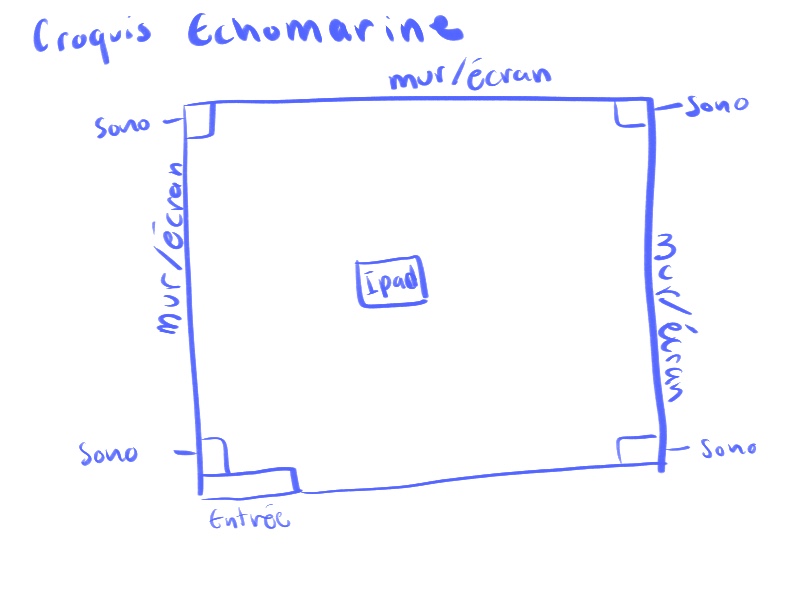 Croquis Echomarine
mur/écran
Sono
Sono
mur/écran
mur/écran
Ipad
Sono
Sono
Entrée